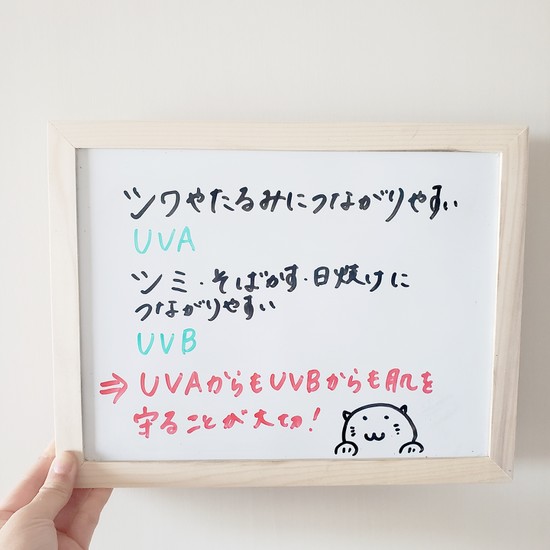 シワやたるみにつながりやすい
UVA
シミ・そばかす・日焼けに
つながりやすい
UVB
⇒UVAからもUVBからも肌を
守ることが大切!